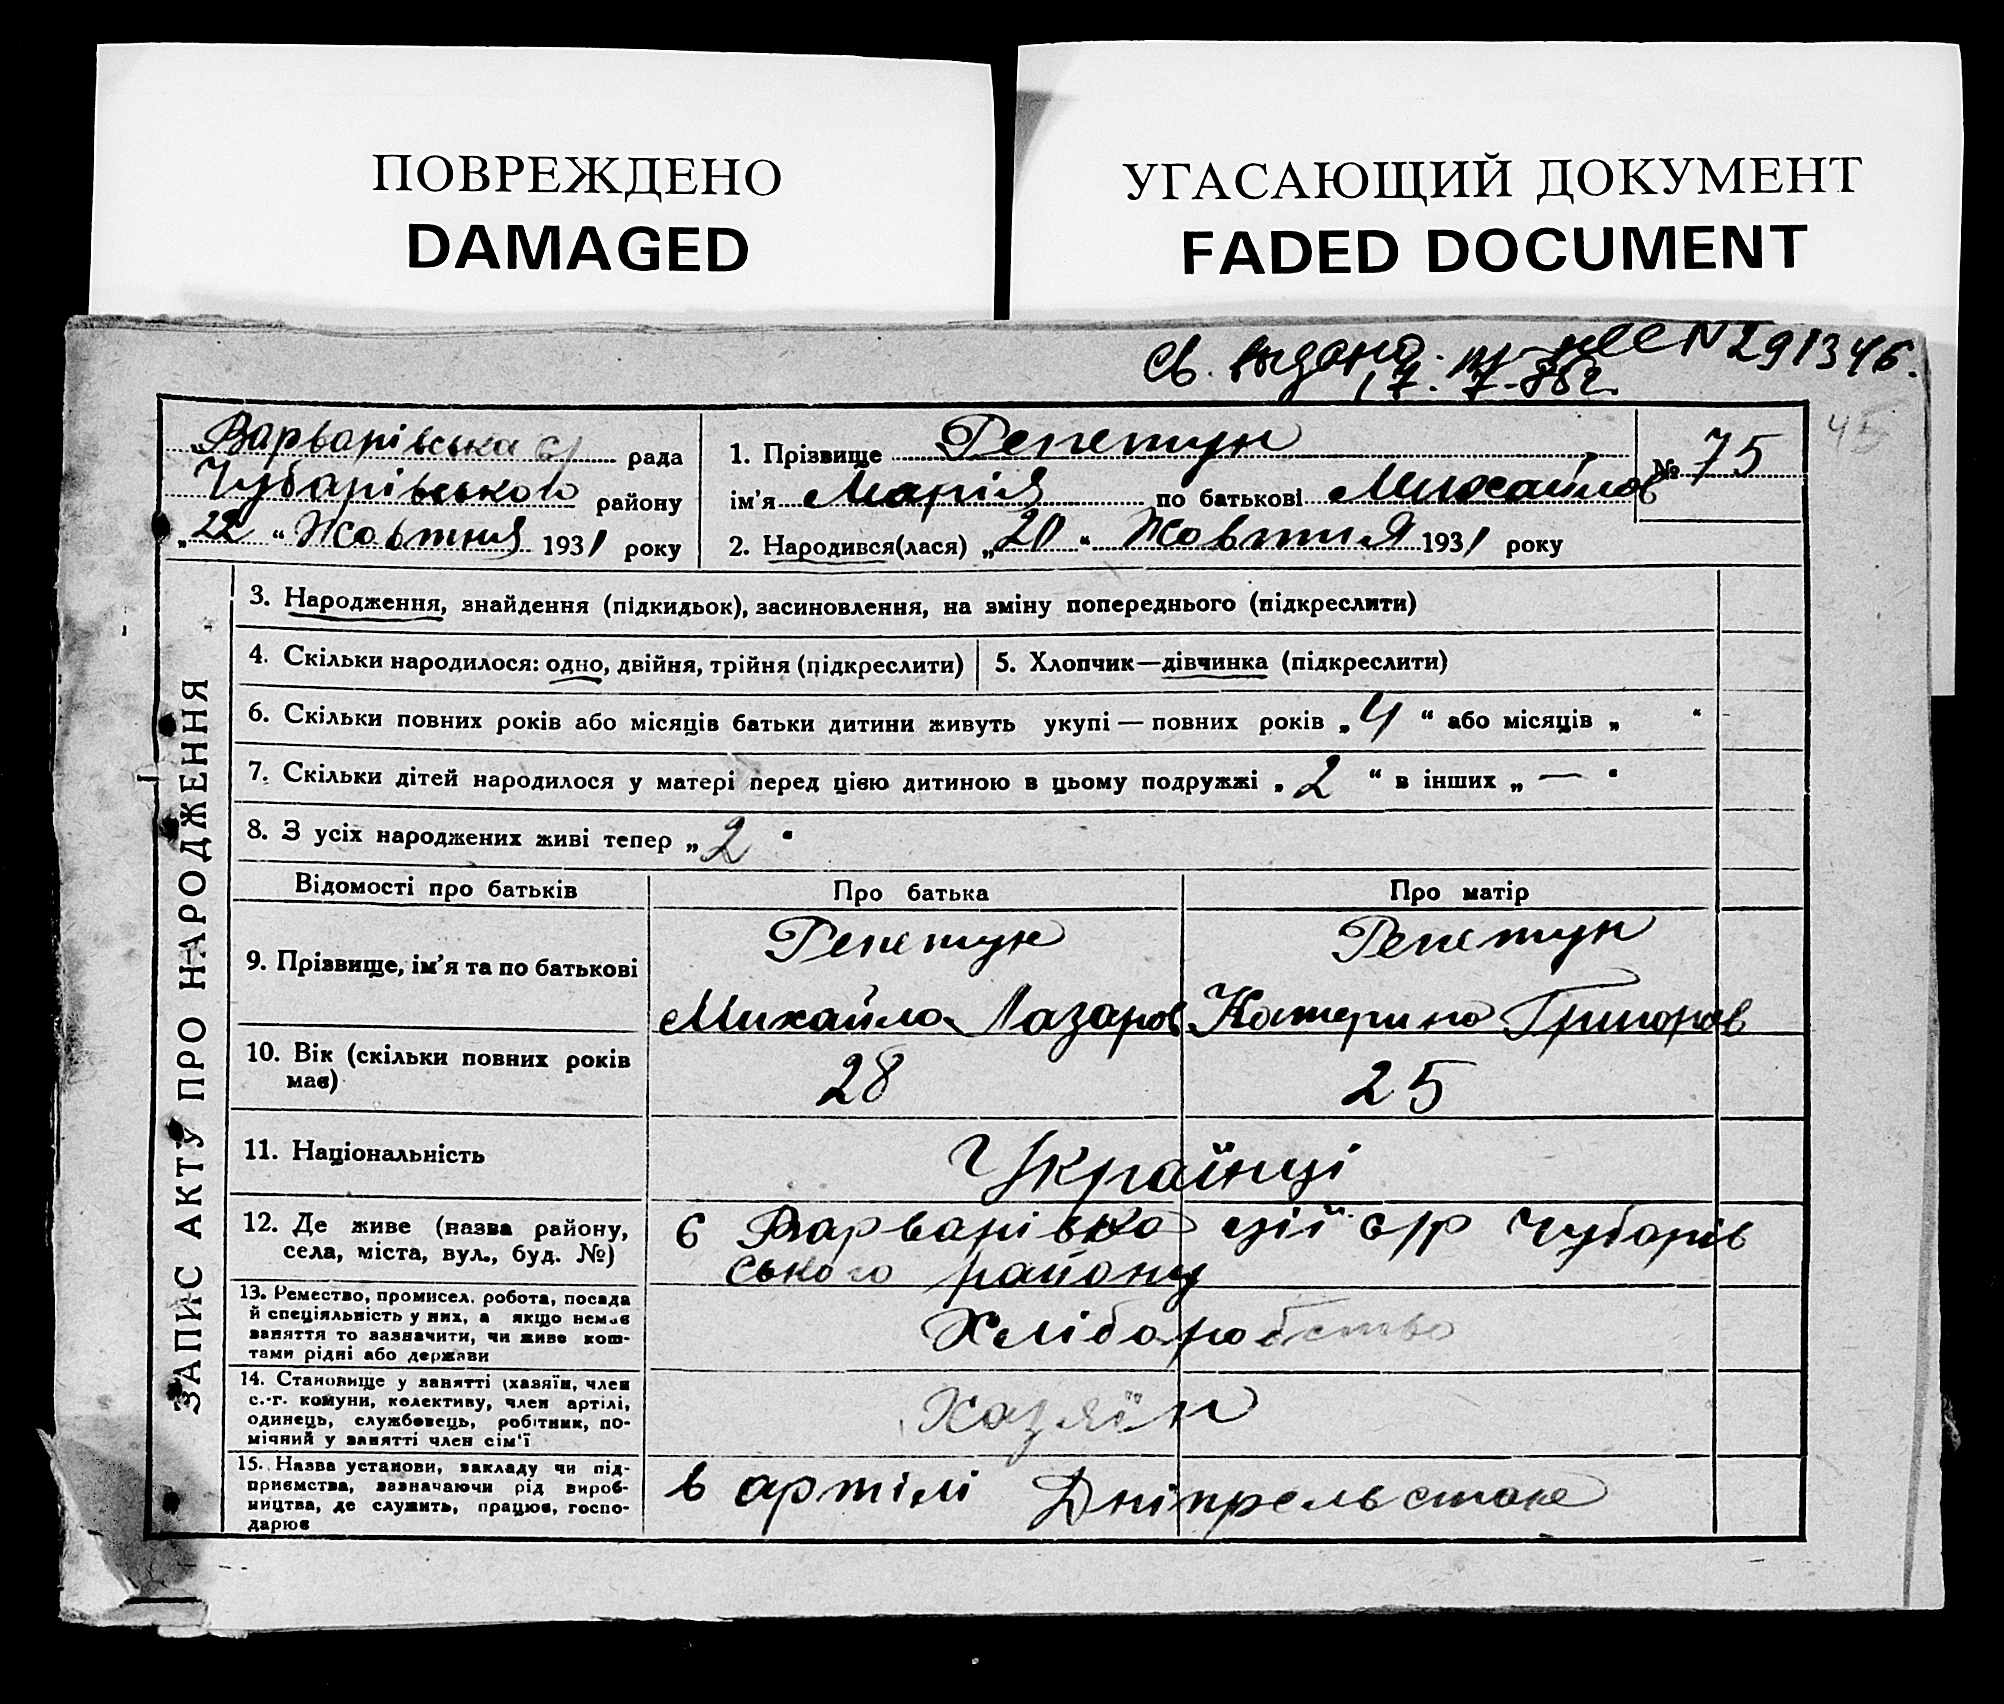 ПОВРЕЖДЕНО
DAMAGED
УГАСАЮЩИЙ ДОКУМЕНТ
FADED DOCUMENT
Св. выдано N 291346.
17.7.
45
Варварівська с/ рада
Чубарівського району
„22“ Жовтня 1931 року
1. Прізвище Репетун
ім'я Марія по батькові Михайлов
2. Народився(лася) „20“ Жовтня 1931 року
№ 75
ЗАПИС АКТУ ПРО НАРОДЖЕННЯ
3. Народження, знайдення (підкидьок), засиновлення, на зміну попереднього (підкреслити)
4. Скільки народилося: одно, двійня, трійня (підкреслити)
5. Хлопчик—дівчинка (підкреслити)
6. Скільки повних років або місяців батьки дитини живуть укупі — повних років „4“ або місяців „ “
7. Скільки дітей народилося у матері перед цією дитиною в цьому подружжі „2“ в інших „—“
8. З усіх народжених живі тепер „2“
Відомості про батьків
Про батька
Про матір
9. Прізвище, ім'я та по батькові
Репетун
Михайло Лазаров
Репетун
Катерина Григоров
10. Вік (скільки повних років
має)
28
25
11. Національність
Українці
12. Де живе (назва району,
села, міста, вул., буд. №)
б Варварівка ції с/р Чубарів
ського району
13. Ремество, промисел, робота, посада
й спеціяльність у них, а якщо немає
заняття то зазначити, чи живе кош-
тами рідні або держави
Хліборобство
14. Становище у занятті (хазяїн, член
с.-г. комуни, колективу, член артілі,
одинець, службовець, робітник, по-
мічний у занятті член сім'ї
Хазяїн
15. Назва установи, закладу чи під-
приємства, зазначаючи рід вироб-
ництва, де служить, працює, госпо-
дарює
в артілі Дніпрельстане